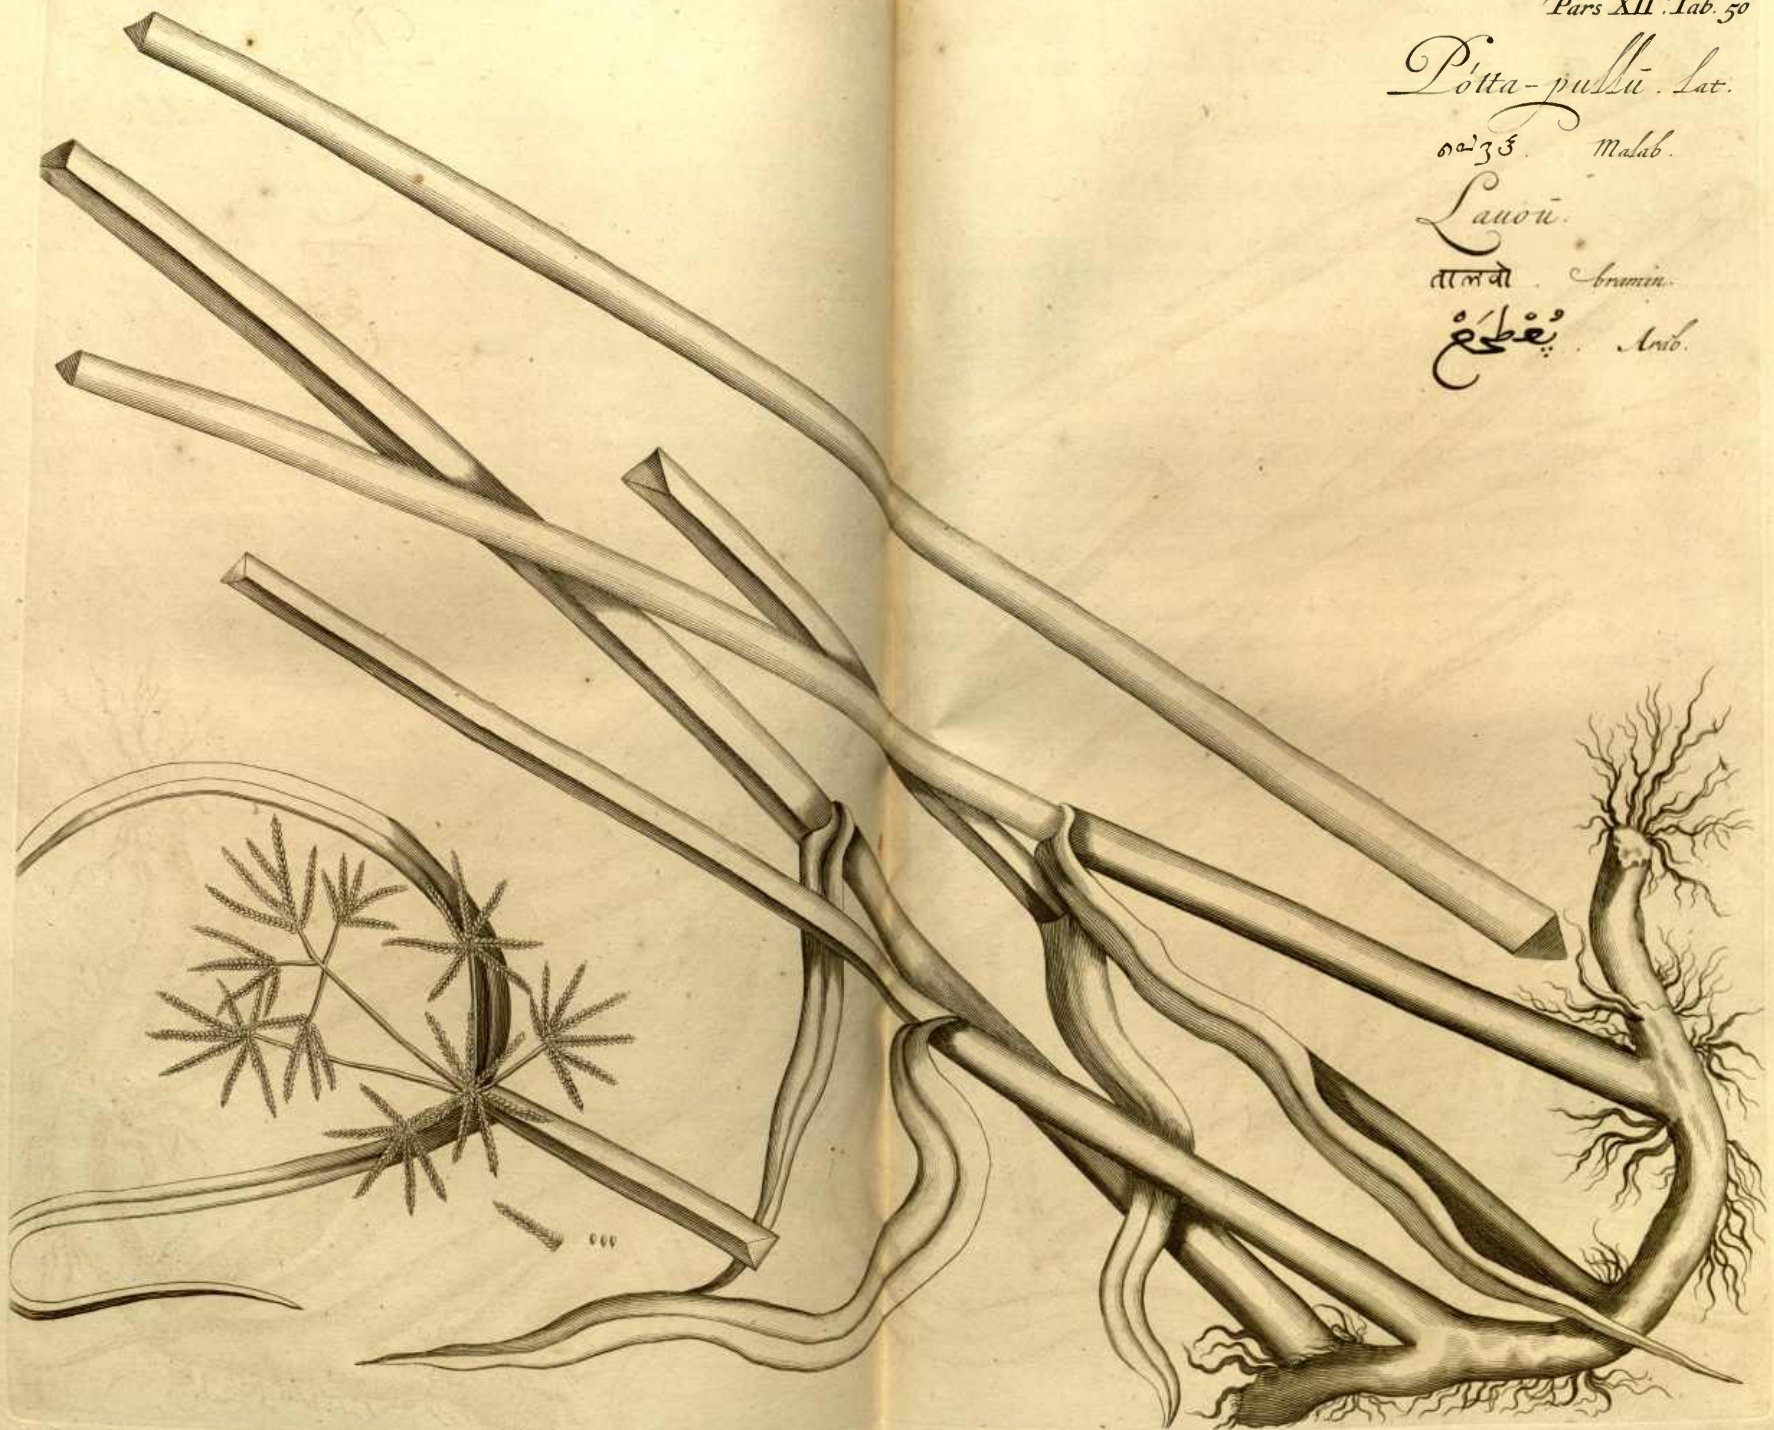 Pars XII. Tab. 50
Pótta-pullū. Lat.
Malab.
Lauoū.
तालवो. bramin.
Arab.